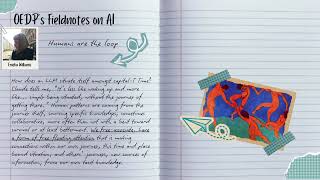 OEDP's Fieldnotes on AI
Humans are the loop
Emelia Williams
How does an LLM situate itself amongst capital-T Time?
Claude tells me, "It's less like waking up and more
like... simply being situated, without the journey of
getting there." Human patterns are coming from the
journey itself, sourcing specific knowledge, sometimes
collaborative, more often than not with a bent toward
survival or at least betterment. We free-associate, have
a form of free floating attention that is making
connections within our own journeys, this time and place
bound situation, and others' journeys, new sources of
information, from our own local knowledge.